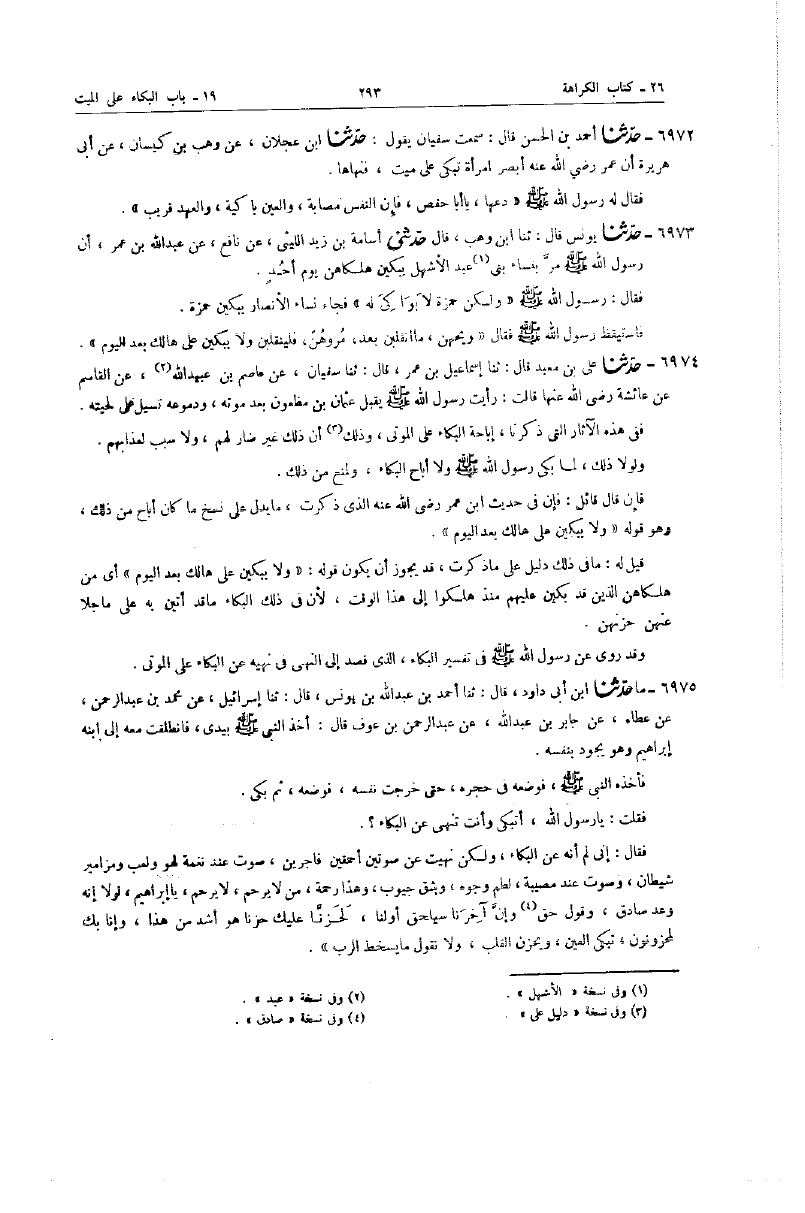 ٢٦ - كتاب الكراهة ٢٩٣ ١٩ - باب البكاء على الميت
٦٩٧٢ - حدّثنا أحمد بن الحسن قال : سمعت سفيان يقول : حدّثنا ابن عجلان ، عن وهب بن كيسان ، عن أبى
هريرة أن عمر رضي الله عنه أبصر امرأة تبكى على ميت ، فنهاها .
فقال له رسول الله ﷺ « دعها ، ياأبا حفص ، فإن النفس مصابة ، والعين باكية ، والعهد قريب » .
٦٩٧٣ - حدّثنا يونس قال : ثنا ابن وهب ، قال حدّثنى أسامة بن زيد الليثى ، عن نافع ، عن عبدالله بن عمر ، أن
رسول الله ﷺ مرَّ بنساء بنى(١) عبد الأشهل يبكين هلكاهن يوم أحُـدٍ .
فقال : رسـول الله ﷺ « ولـكن حمزة لابَوَاكِىَ له » فجاء نساء الأنصار يبكين حمزة .
فاستيقظ رسول الله ﷺ فقال « ويحهن ، ماانقلبن بعد، مُروهُنّ، فلينقلبن ولا يبكين على هالك بعد اليوم » .
٦٩٧٤ - حدّثنا على بن معبد قال : ثنا إسماعيل بن عمر ، قال : ثنا سفيان ، عن عاصم بن عبهدالله(٢) ، عن القاسم
عن عائشة رضى الله عنها قالت : رأيت رسول الله ﷺ يقبل عثمان بن مظعون بعد موته ، ودموعه تسيل على لحيته .
ففى هذه الآثار التى ذكرنا ، إباحة البكاء على الموتى ، وذلك(٣) أن ذلك غير ضار لهم ، ولا سبب لعذابهم .
ولولا ذلك ، لمـا بكى رسول الله ﷺ ولا أباح البكاء ، ولمنع من ذلك .
فإن قال قائل : فإن فى حديث ابن عمر رضى الله عنه الذى ذكرت ، مايدل على نسخ ما كان أباح من ذلك ،
وهو قوله « ولا يبكين على هالك بعد اليوم » .
قيل له : مافى ذلك دليل على ماذكرت ، قد يجوز أن يكون قوله : « ولا يبكين على هالك بعد اليوم » أى من
هلـكاهن الذين قد بكين عليهم منذ هلـكوا إلى هذا الوقت ، لأن فى ذلك البكاء ماقد أتين به على ماجلا
عنهن حزنهن .
وقد روى عن رسول الله ﷺ فى تفسير البكاء ، الذى قصد إلى النهى فى نهيه عن البكاء على الموتى .
٦٩٧٥ - ما حدّثنا ابن أبى داود ، قال : ثنا أحمد بن عبدالله بن يونس ، قال : ثنا إسرائيل ، عن محمد بن عبدالرحمن ،
عن عطاء ، عن جابر بن عبدالله ، عن عبدالرحمن بن عوف قال : أخذ النبى ﷺ بيدى ، فانطلقت معه إلى ابنه
إبراهيم وهو يجود بنفسه .
فأخذه النبى ﷺ ، فوضعه فى حجره ، حتى خرجت نفسه ، فوضعه ، ثم بكى .
فقلت : يارسول الله ، أتبكى وأنت تنهى عن البكاء ؟ .
فقال : إنى لم أنه عن البكاء ، ولـكن نهيت عن صوتين أحمقين فاجرين ، صوت عند نغمة لهو ولعب ومزامير
شيطان ، وصوت عند مصيبة ، لطم وجوه ، وشق جيوب ، وهذا رحمة ، من لايرحم ، لايرحم ، ياإبراهيم ، لولا إنه
وعد صادق ، وقول حق(٤) وإنَّ آخِرَنا سيلحق أولنا ، لَحَزِنَّا عليك حزنا هو أشد من هذا ، وإنا بك
لمحزونون ، تبكى العين ، ويحزن القلب ، ولا نقول مايسخط الرب » .
(١) وفى نسخة « الأشهل » . (٢) وفى نسخة « عبد » .
(٣) وفى نسخة « دليل على » . (٤) وفى نسخة « صادق » .